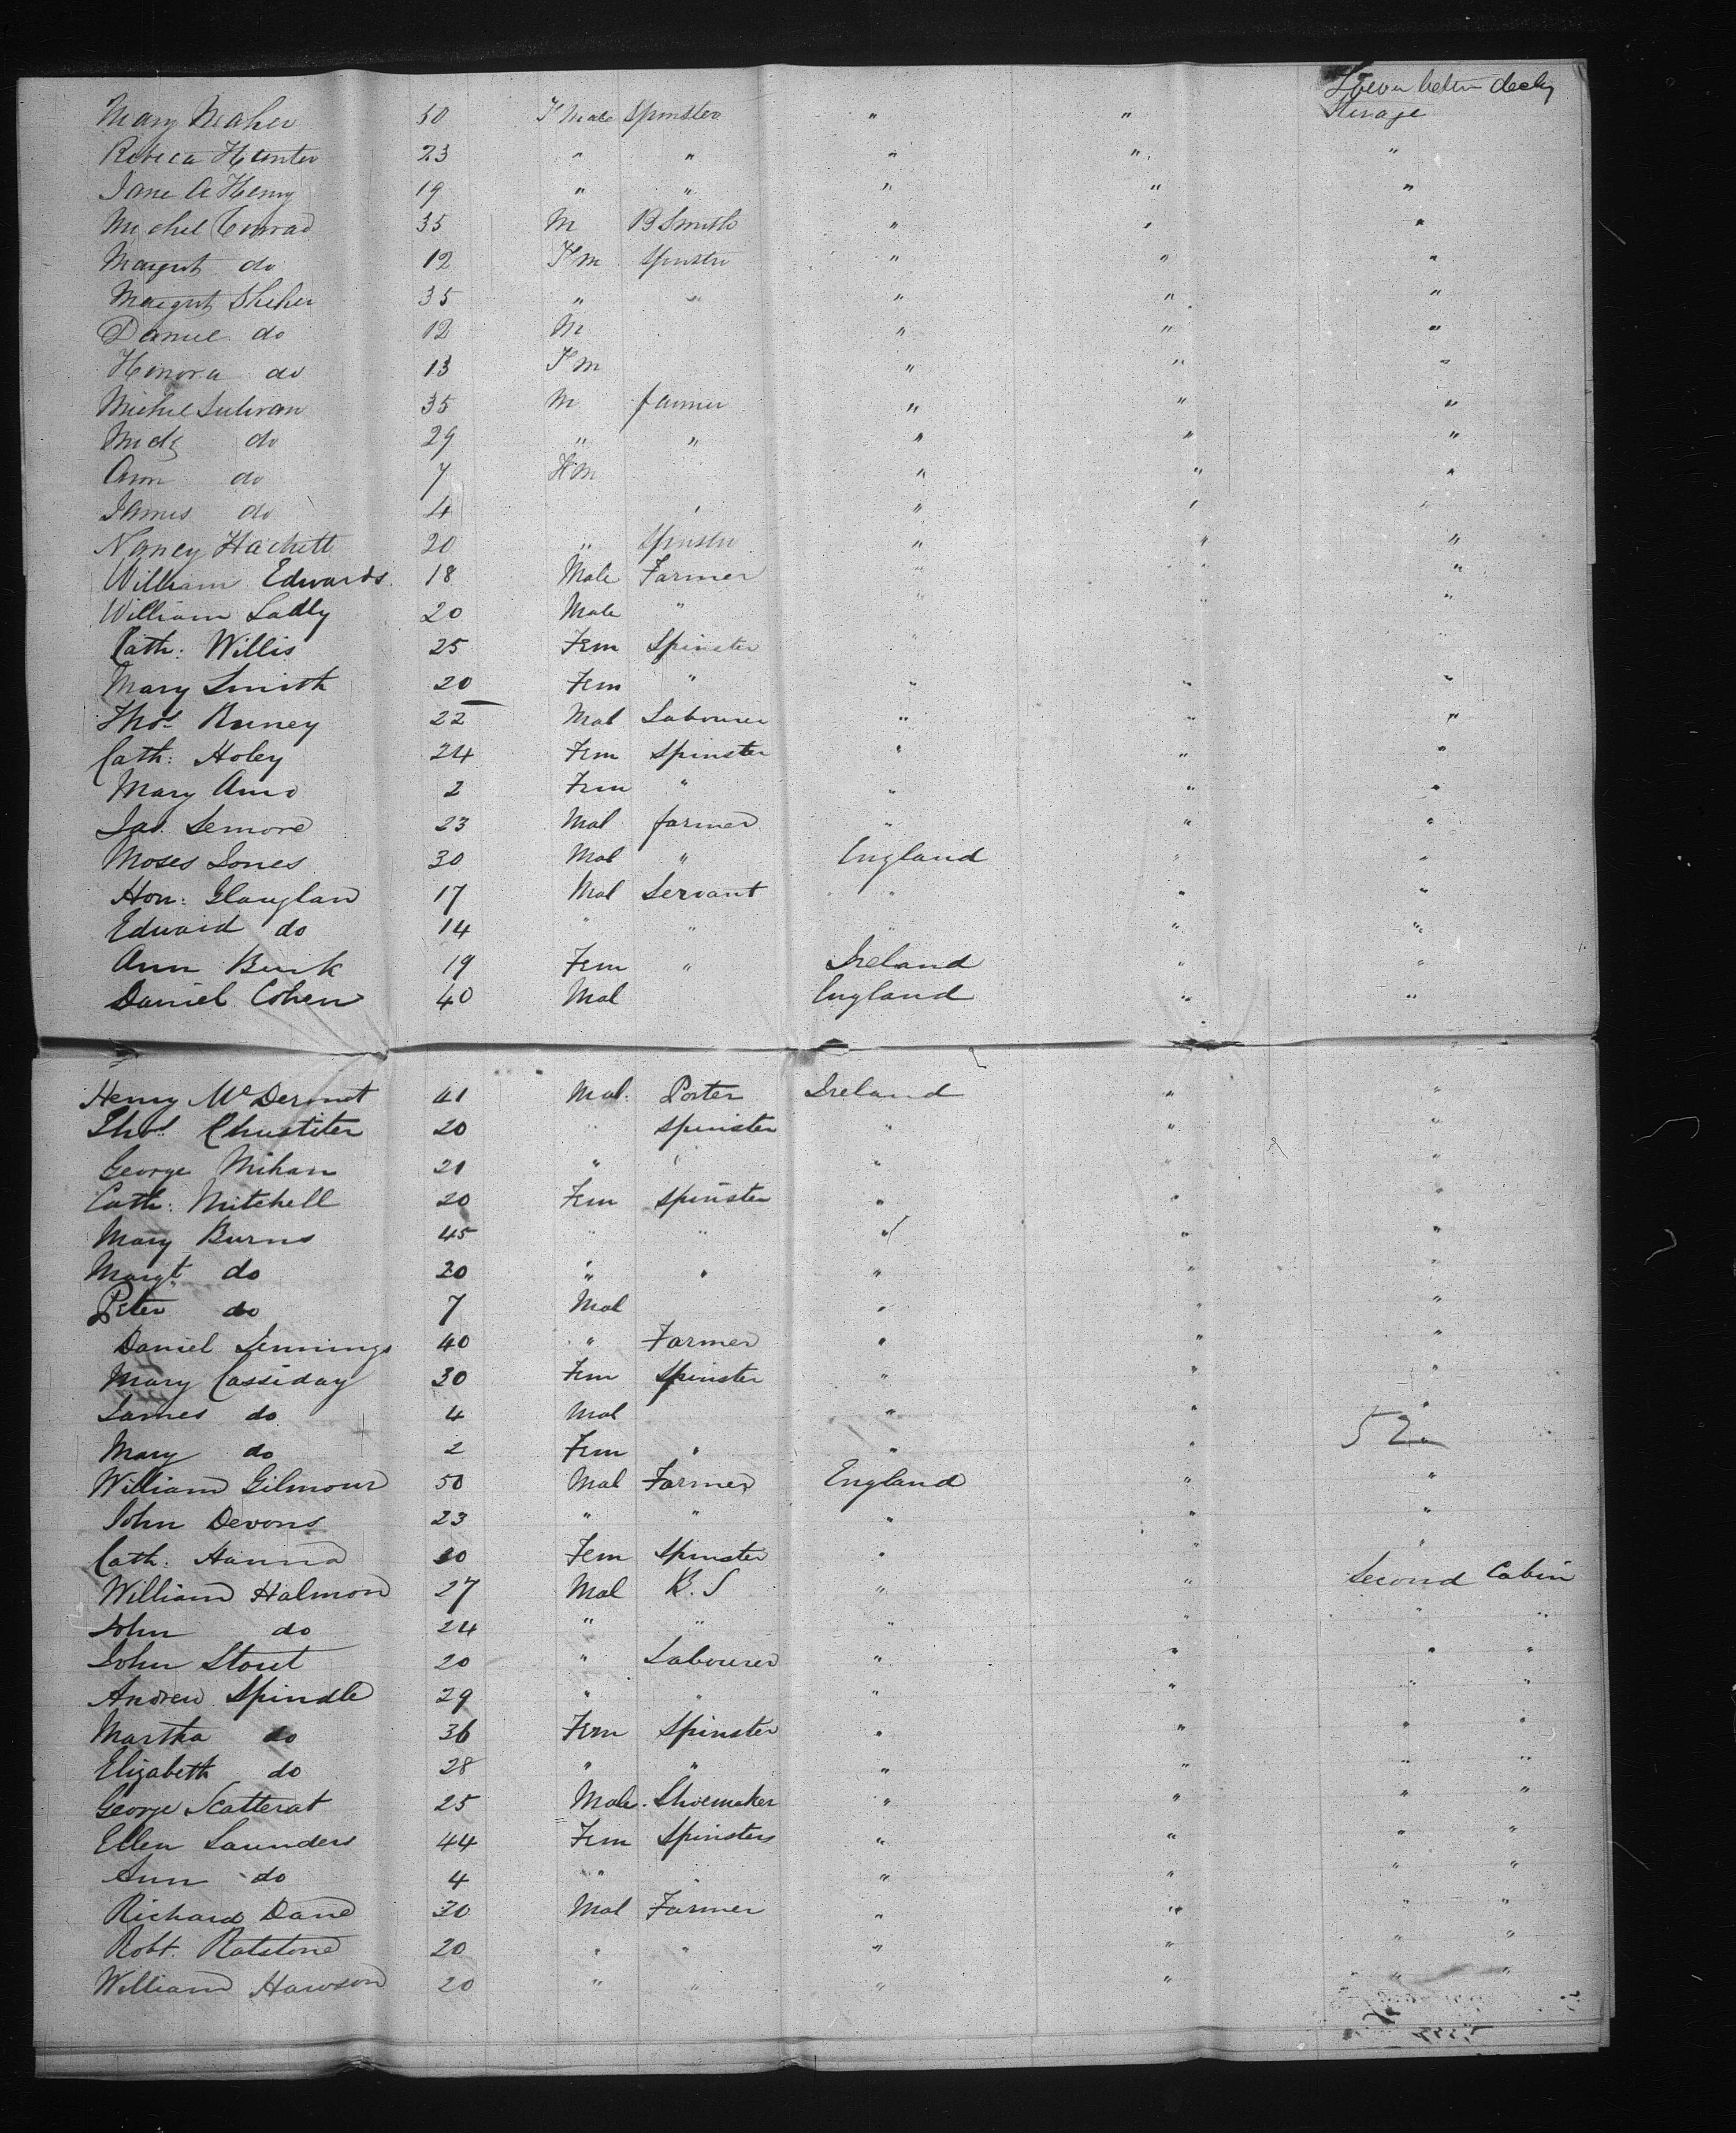 Lower betwn decks
Mary Meaher 50 F Male Spinster " " Sterage
Rebeca Hunter 23 " " " " "
Jane A Henry 19 " " " " "
Michel Conrad 35 M B Smith " " "
Margrit do 12 Fm Spinstr " " "
Margrit Sheher 35 " " " " "
Daniel do 12 M " " "
Honora do 13 Fm " " "
Michel Sulivan 35 M farmer " " "
do 29 " " " " "
Ann do 7 Fm " " "
James do 4 " " "
Nancy Hachett 20 " Spinstr " " "
William Edwards 18 Male Farmer " " "
William Ladly 20 Male " " " "
Cath: Willis 25 Fem Spinster " "
Mary Smith 20 Fem " " " "
Thos. Runey 22 Mal Labourer " " "
Cath: Holey 24 Fem Spinster " " "
Mary Ann 2 Fem " " " "
Jas. Semore 23 Mal farmer " " "
Moses Jones 30 Mal " England " "
Hon: Glauglan 17 Mal Servant " " "
Edward do 14 " " " " "
Ann Burk 19 Fem " Ireland " "
Daniel Cohen 40 Mal England " "
Henry McDermot 41 Mal: Porter Ireland " "
Thos. Chustiter 20 " Spinster " " "
George Mihan 21 " " " " "
Cath: Mitchell 20 Fem Spinster " " "
Mary Burns 45 " " " " "
Margt. do 20 " " " " "
Peter do 7 Mal " " "
Daniel Jennings 40 " Farmer " " "
Mary Cassiday 30 Fem Spinster " " "
James do 4 Mal " " "
Mary do 2 Fem " " " 52 "
William Gilmour 50 Mal Farmer England " "
John Devons 23 " " " " "
Cath: Hanna 20 Fem Spinster " " "
William Halmon 27 Mal B. S " " Second Cabin
John do 24 " " " " " "
John Stout 20 " Labourer " " " "
Andrew Spindle 29 " " " " " "
Martha do 36 Fem Spinster " " " "
Elizabeth do 28 " " " " " "
George Scatterat 25 Male. Shoemaker " " " "
Ellen Saunders 44 Fem Spinsters " " " "
Ann do 4 " " " " "
Richard Dane 30 Mal Farmer " " " "
Robt. Ratstone 20 " " " " " "
William Hawson 20 " " " " " "